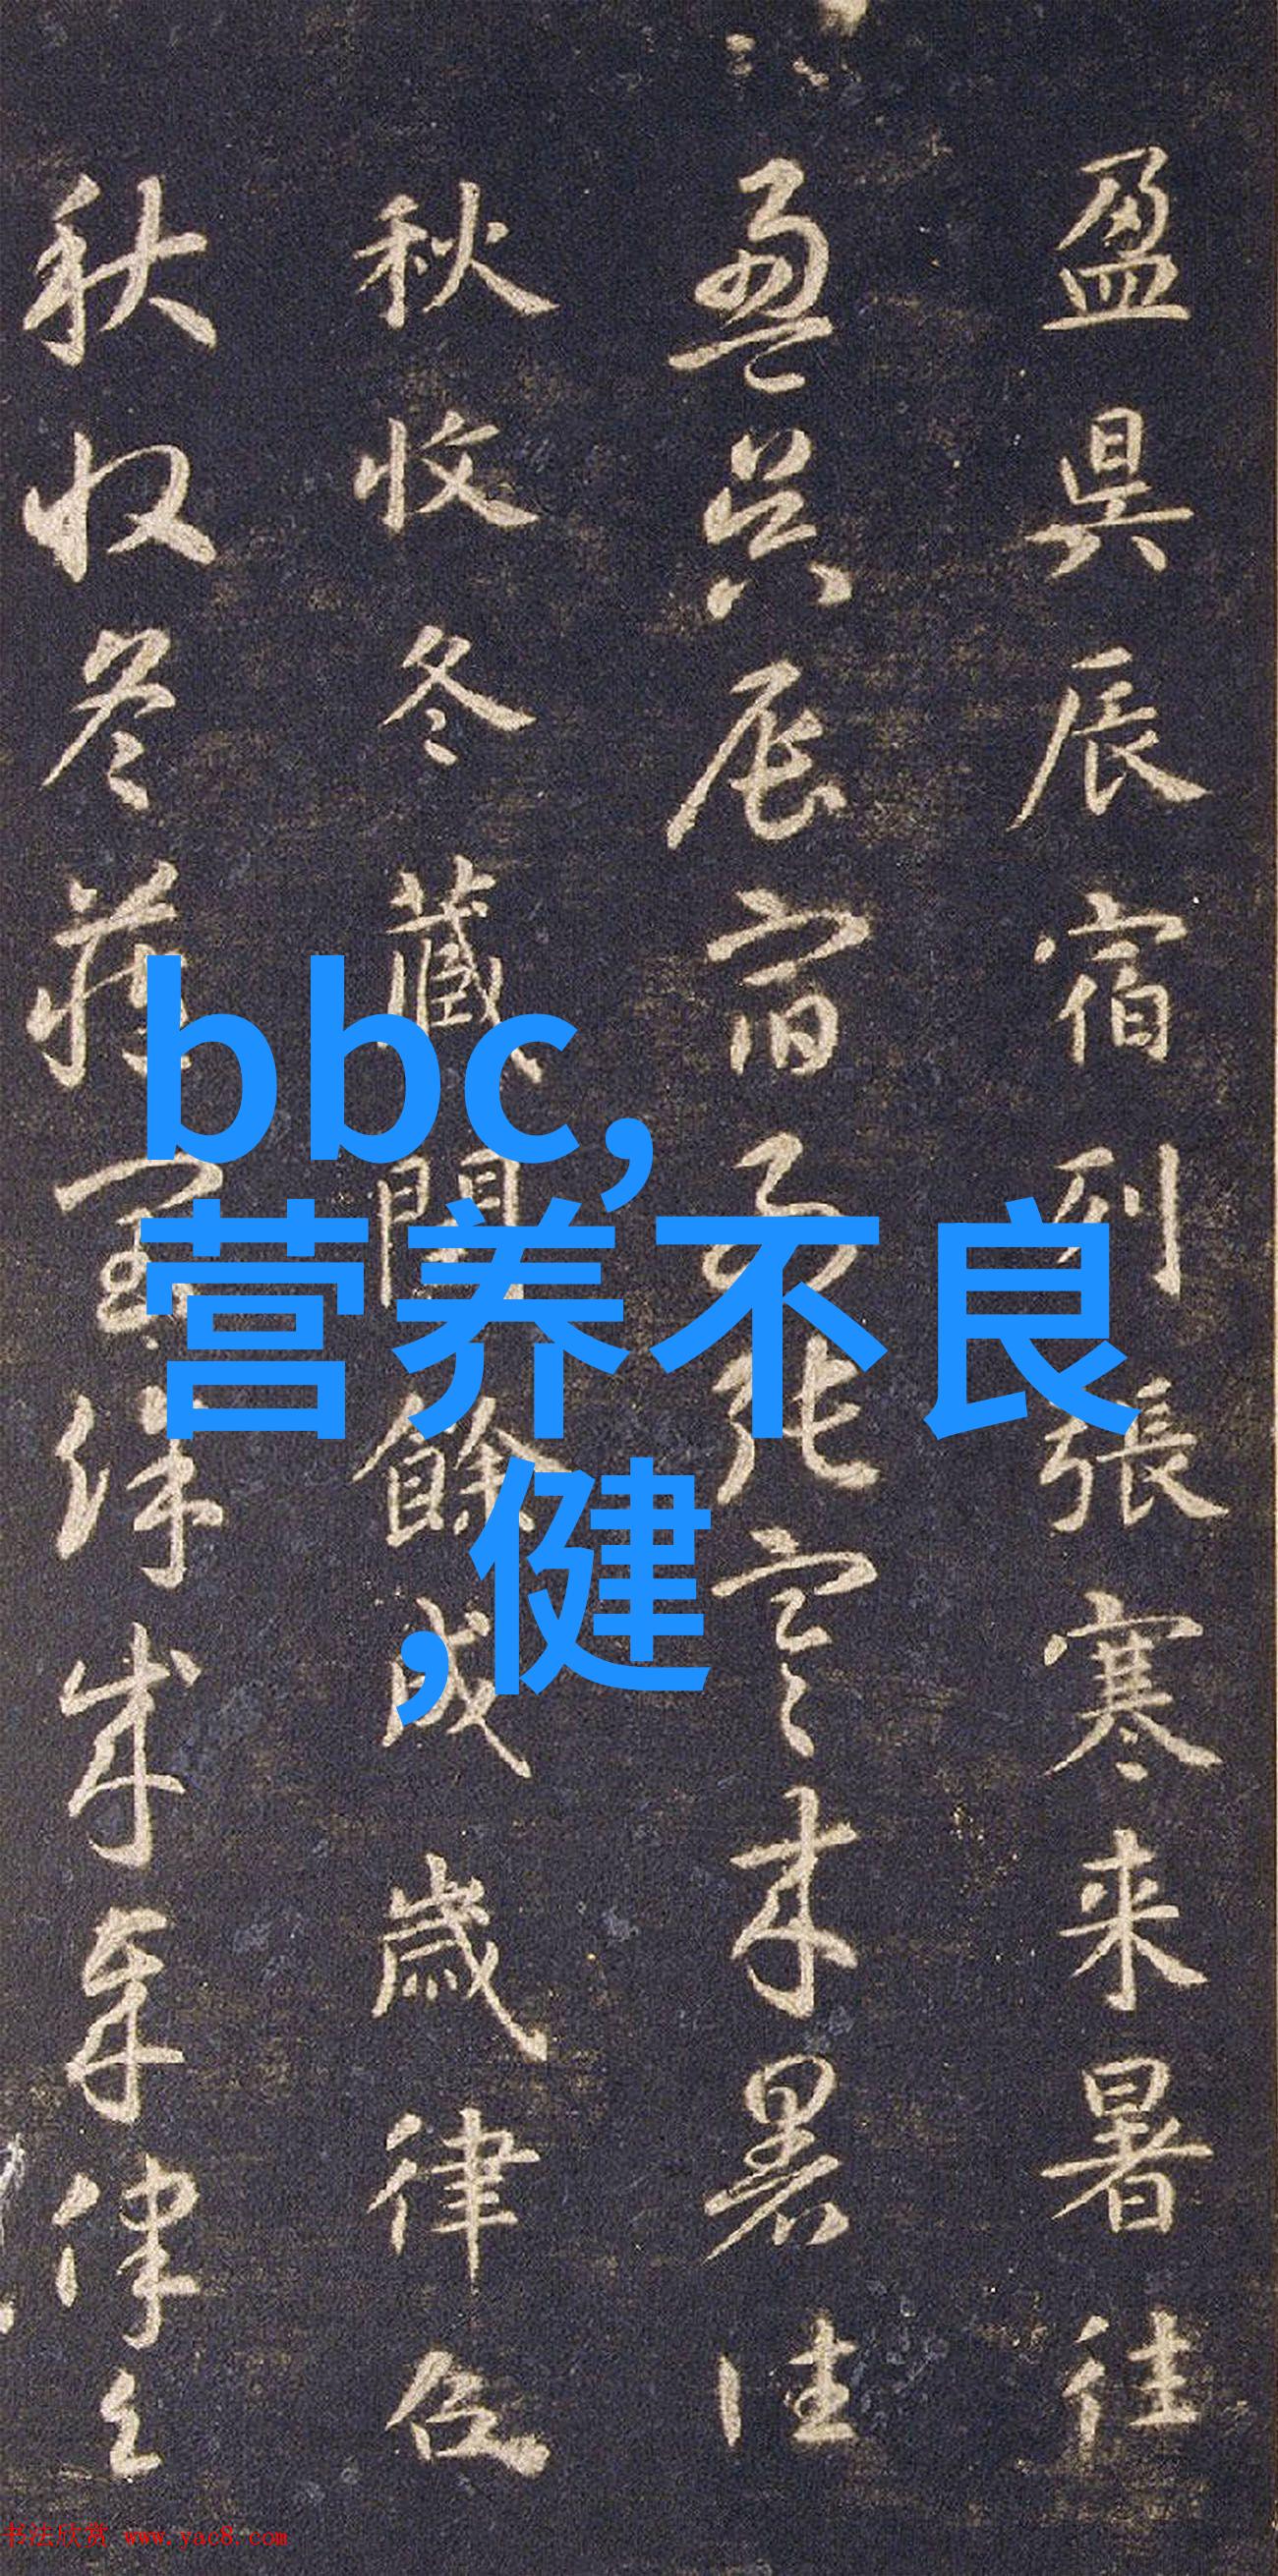 盈昃辰宿列張寒来暑往
盈昃辰宿列張寒来暑往
秋收冬藏閏餘成歲律召
秋收冬藏閏餘成歲律召
bbc,
营养不良
,健
书法欣赏 www.yac8.com